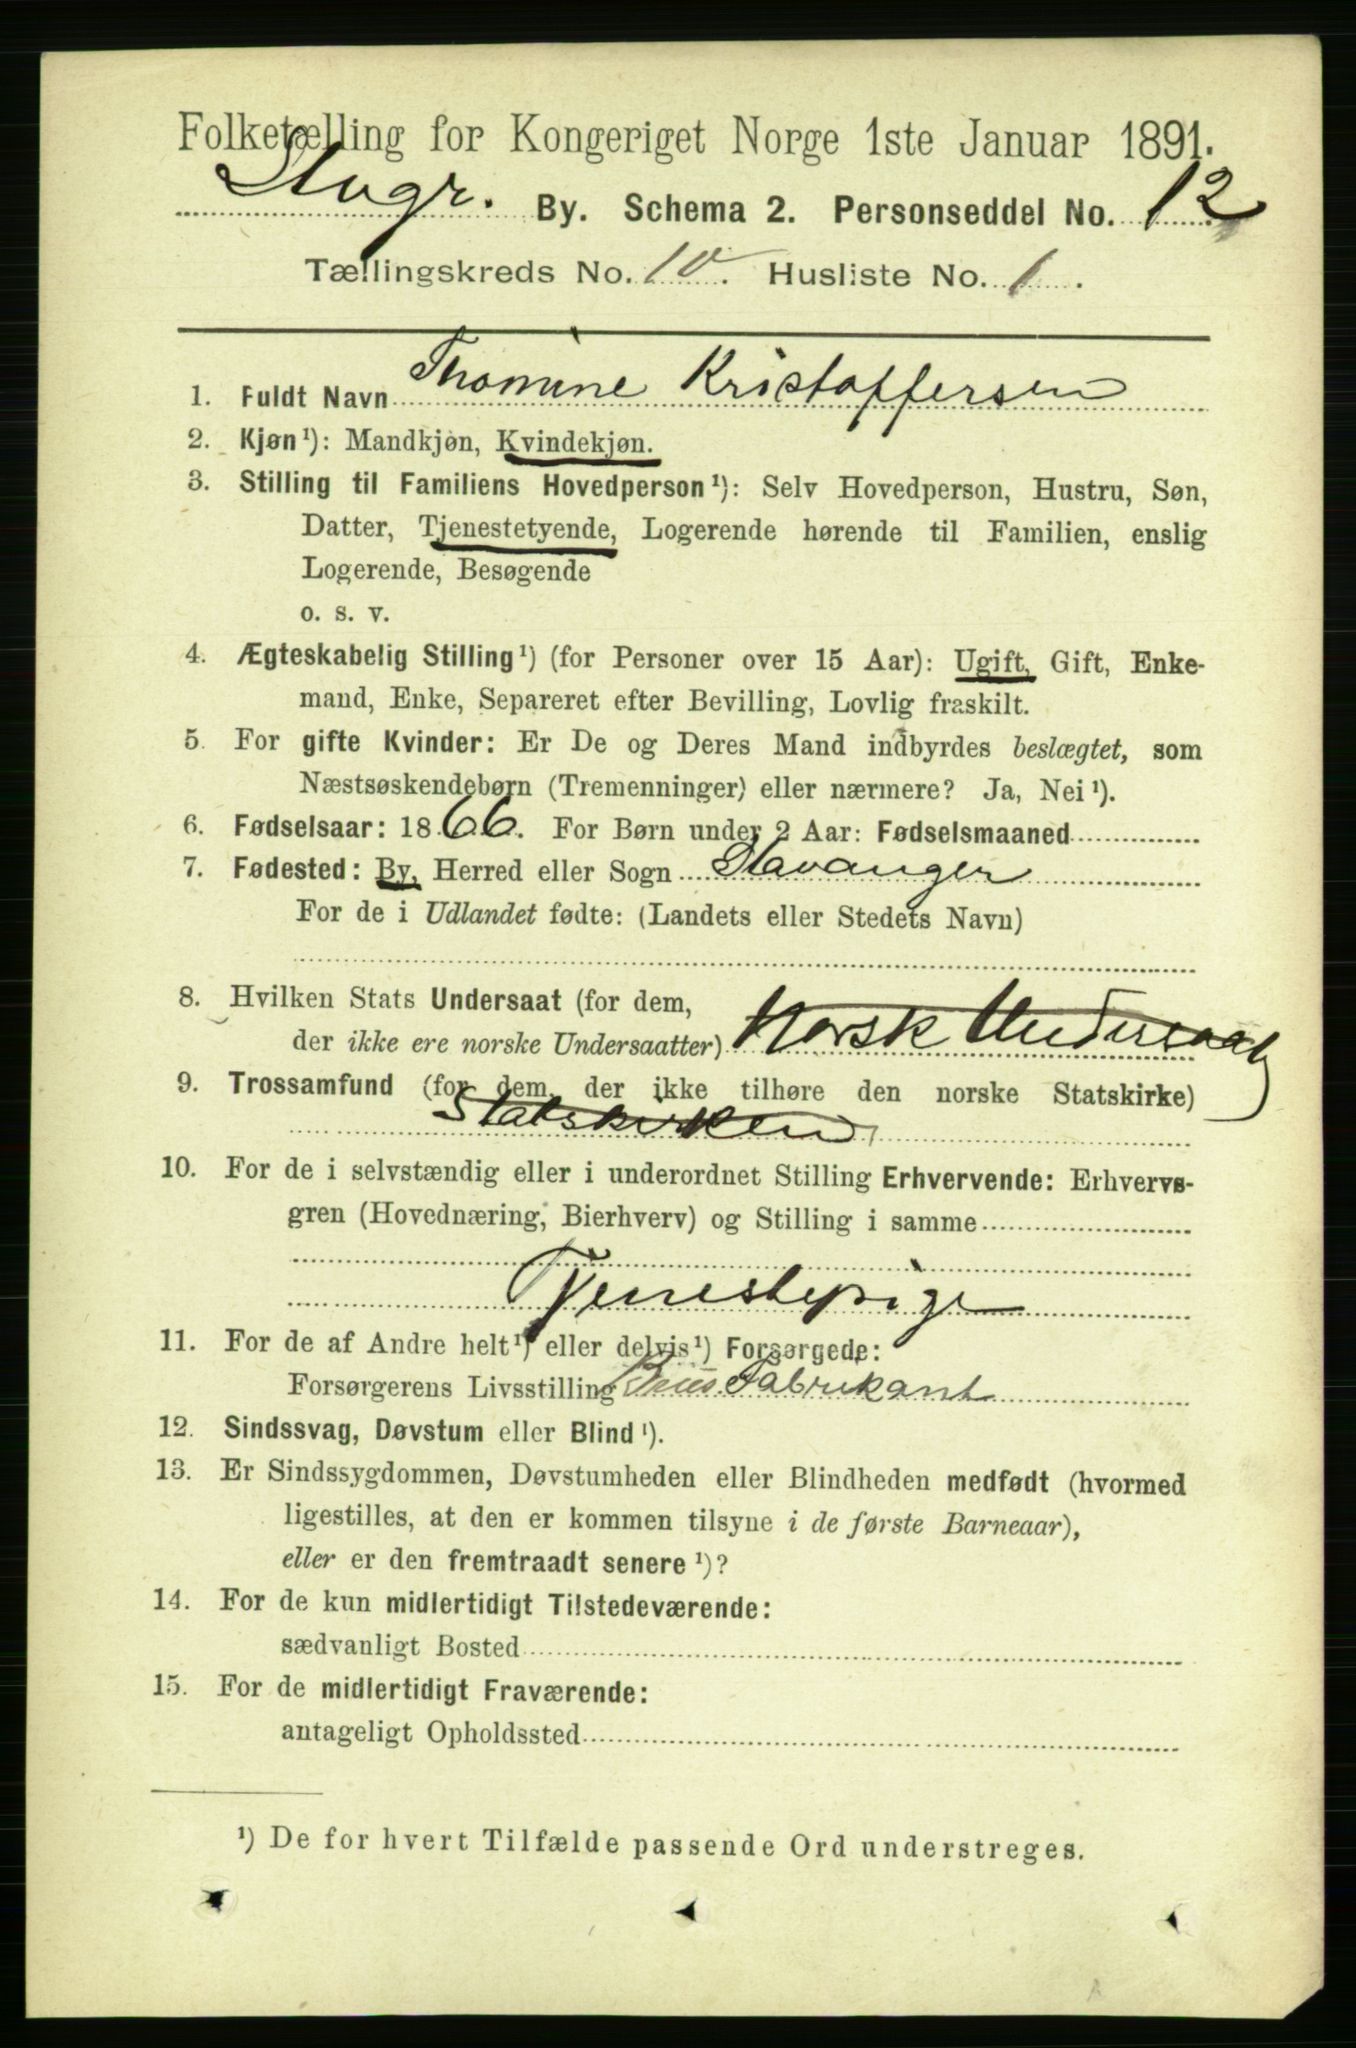 Folketælling for Kongeriget Norge 1ste Januar 1891.
Stvgr. By. Schema 2. Personseddel No. 12
Tællingskreds No. 10. Husliste No. 1.
1. Fuldt Navn Thomine Kristoffersen
2. Kjøn¹): Mandkjøn, Kvindekjøn.
3. Stilling til Familiens Hovedperson¹): Selv Hovedperson, Hustru, Søn,
Datter, Tjenestetyende, Logerende hørende til Familien, enslig
Logerende, Besøgende
o. s. v.
4. Ægteskabelig Stilling¹) (for Personer over 15 Aar): Ugift, Gift, Enke-
mand, Enke, Separeret efter Bevilling, Lovlig fraskilt.
5. For gifte Kvinder: Er De og Deres Mand indbyrdes beslægtet, som
Næstsøskendebørn (Tremenninger) eller nærmere? Ja, Nei¹).
6. Fødselsaar: 1866. For Børn under 2 Aar: Fødselsmaaned
7. Fødested: By, Herred eller Sogn Stavanger
For de i Udlandet fødte: (Landets eller Stedets Navn)
8. Hvilken Stats Undersaat (for dem,
der ikke ere norske Undersaatter) Norsk Undersaat
9. Trossamfund (for dem, der ikke tilhøre den norske Statskirke)
Statskirken
10. For de i selvstændig eller i underordnet Stilling Erhvervende: Erhvervs-
gren (Hovednæring, Bierhverv) og Stilling i samme
Tjenestepige
11. For de af Andre helt¹) eller delvis¹) Forsørgede:
Forsørgerens Livsstilling Fabrikant
12. Sindssvag, Døvstum eller Blind¹).
13. Er Sindssygdommen, Døvstumheden eller Blindheden medfødt (hvormed
ligestilles, at den er kommen tilsyne i de første Barneaar),
eller er den fremtraadt senere¹)?
14. For de kun midlertidigt Tilstedeværende:
sædvanligt Bosted
15. For de midlertidigt Fraværende:
antageligt Opholdssted
¹) De for hvert Tilfælde passende Ord understreges.